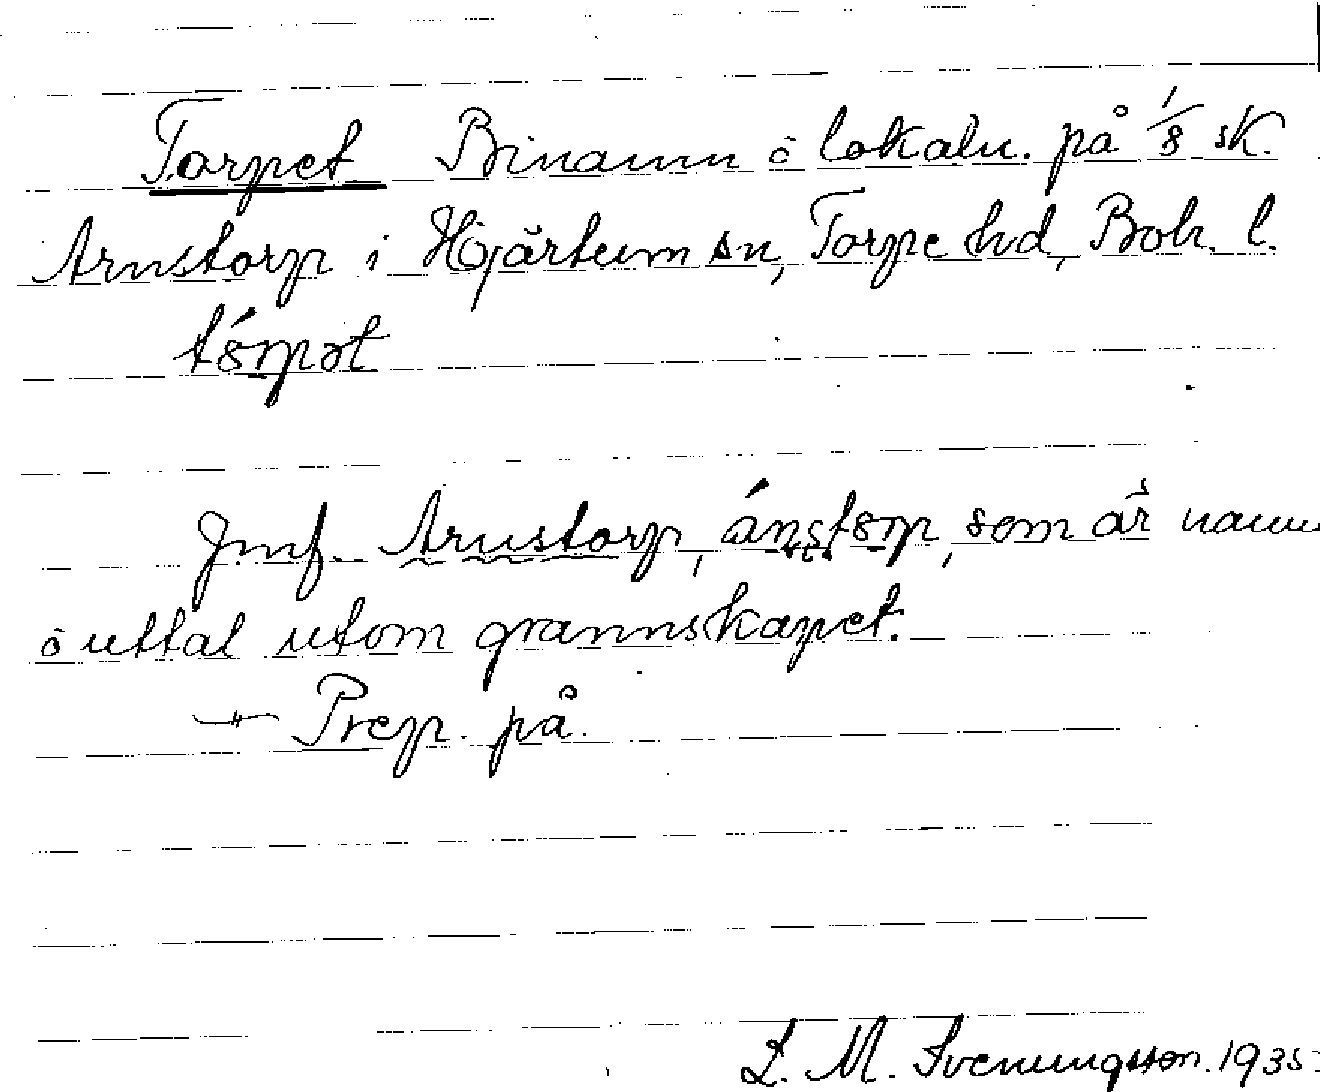 Torpet Binamn o lokaln. på 1/8 sk.
Arnstorp i Hjärtum sn, Torpe hd, Boh. l.
Jmf. Arnstorp, som är namn
o uttal utom grannskapet.
Prep. på.
L. M. Svenungsson. 1935